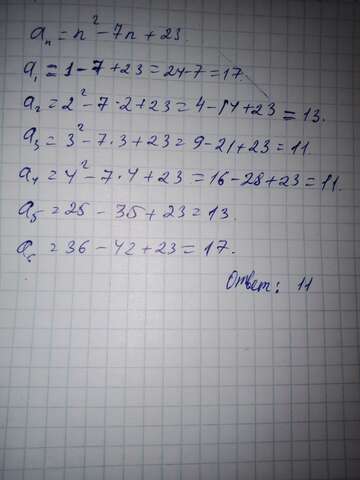 aₙ = n² - 7n + 23
a₁ = 1 - 7 + 23 = 24 - 7 = 17.
a₂ = 2² - 7 · 2 + 23 = 4 - 14 + 23 = 13.
a₃ = 3² - 7 · 3 + 23 = 9 - 21 + 23 = 11
a₄ = 4² - 7 · 4 + 23 = 16 - 28 + 23 = 11.
a₅ = 25 - 35 + 23 = 13.
a₆ = 36 - 42 + 23 = 17.
Ответ: 11